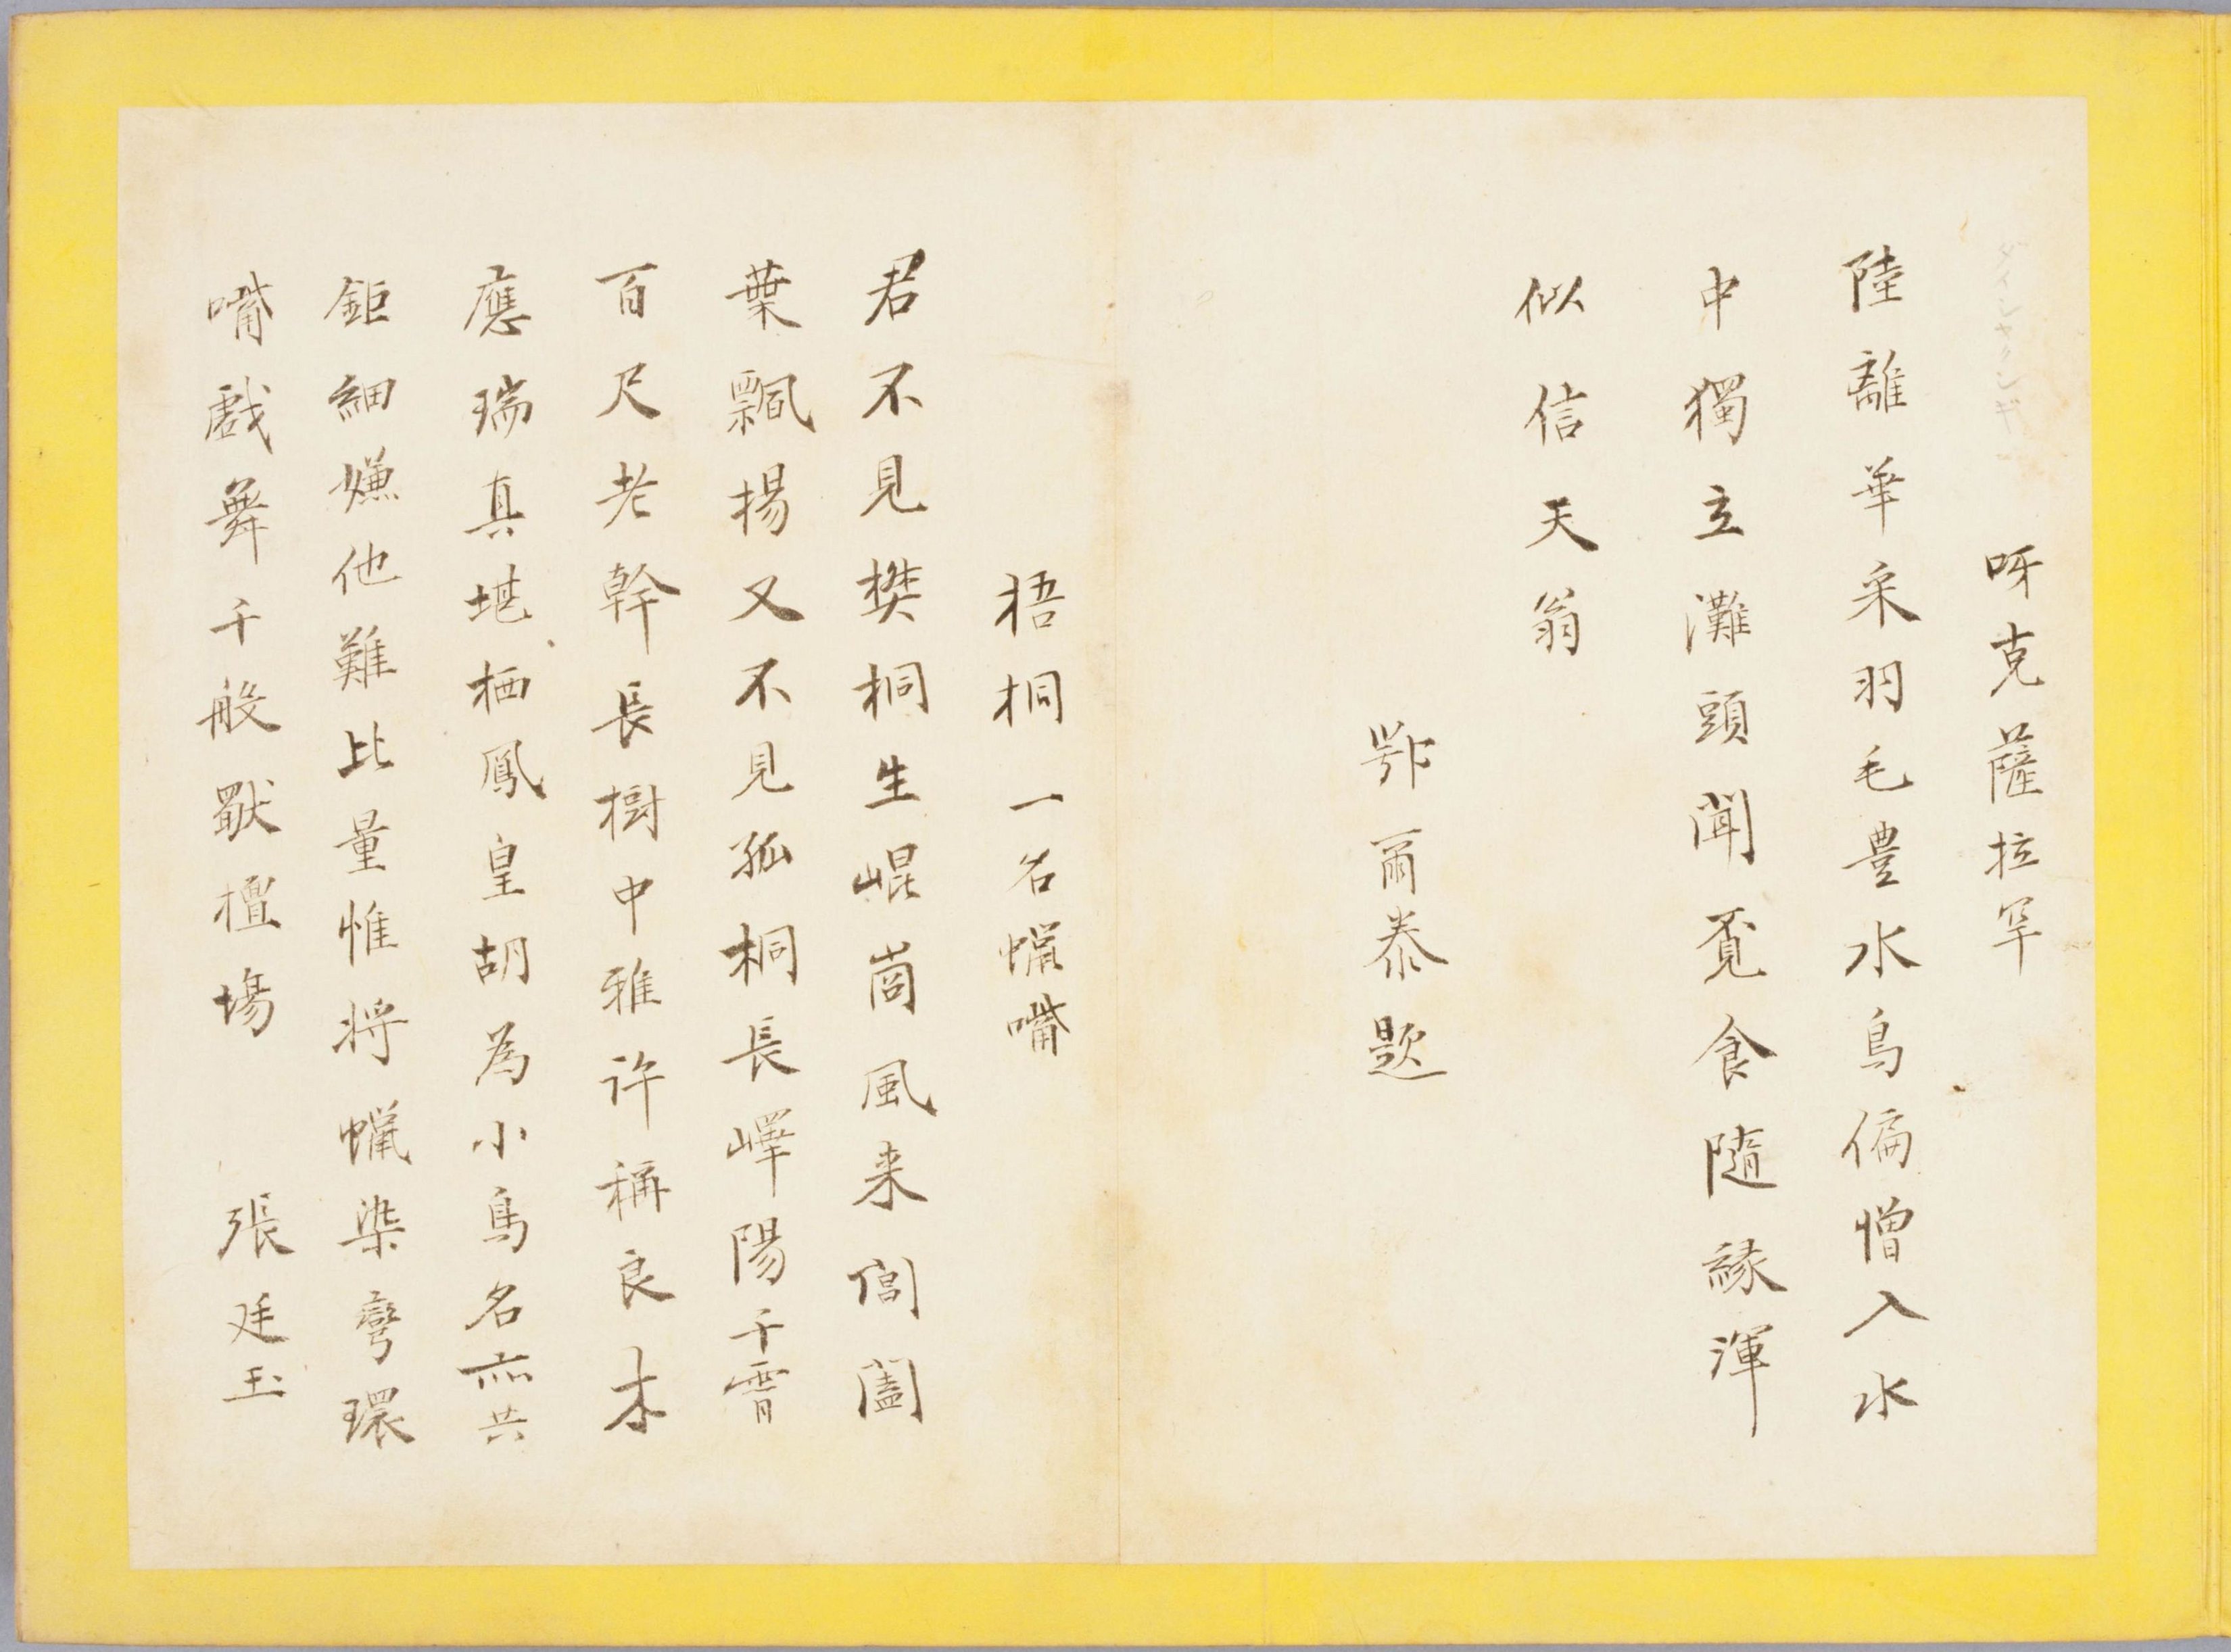 呀克薩拉罕
陸離華采羽毛豊水鳥偏憎入水
中獨立灘頭閒覓食隨緣渾
似信天翁
鄂爾泰題
梧桐一名蠟嘴
君不見櫽桐生崐崗風来閶闔
葉飄揚又不見孤桐長嶧陽干霄
百尺老幹長樹中雅許稱良木
應瑞真堪栖鳳皇胡為小鳥名亦共
鉅細嫌他難比量惟將蠟染彎環
嘴戲舞千般獸檀場
張廷玉